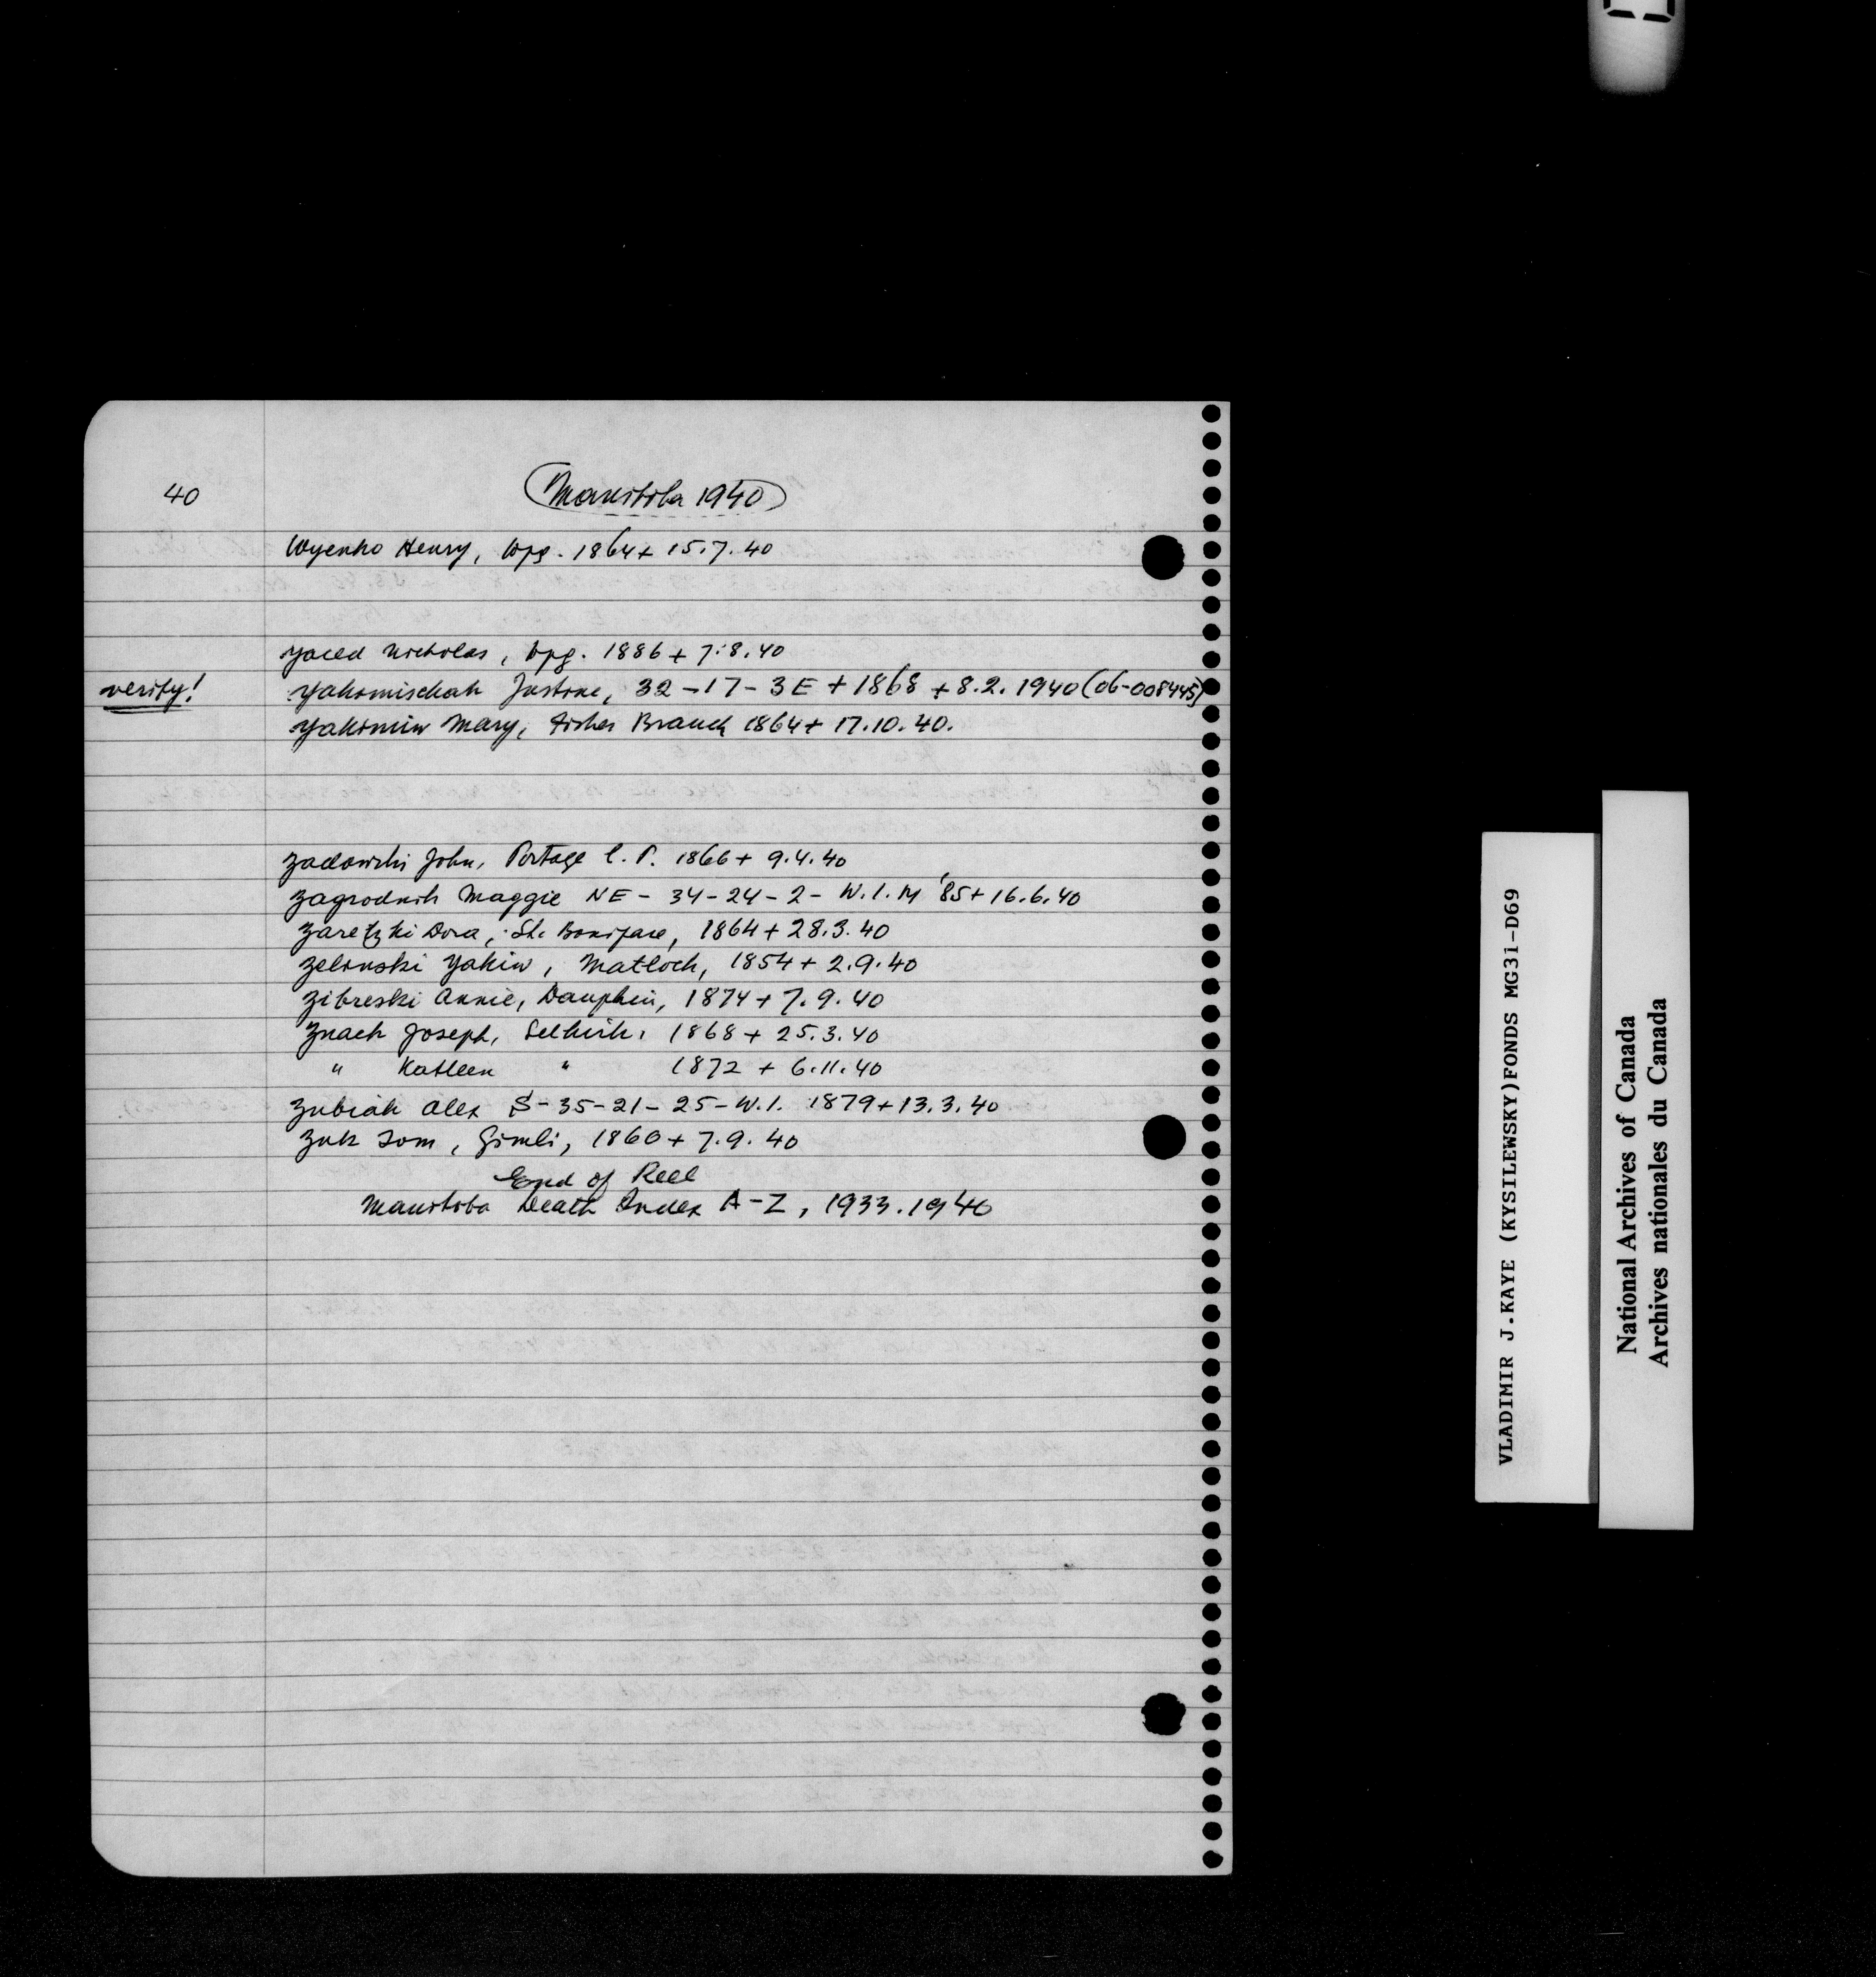 40
Manitoba 1940
Wyenko Henry, Wpg. 1864 + 15.7.40
Yaced Nicholas, Wpg. 1886 + 7.8.40
verify! Yakomischak Justine, 32-17-3E + 1868 + 8.2.1940 (06-008445)
Yakimiw Mary, Fisher Branch 1864 + 17.10.40.
Zadowski John, Portage l. P. 1866 + 9.4.40
Zagrodnik Maggie NE-34-24-2-W.1.M '85 + 16.6.40
Zaretzki Dora, St. Boniface, 1864 + 28.3.40
Zelinski Yakiw, Matloch, 1854 + 2.9.40
Zibreski Annie, Dauphin, 1874 + 7.9.40
Znach Joseph, Selkirk, 1868 + 25.3.40
" Katleen " 1872 + 6.11.40
Zubiak Alex S-35-21-25-W.1. 1879 + 13.3.40
Zuk Tom, Gimli, 1860 + 7.9.40
End of Reel
Manitoba Death Index A-Z, 1933.1940
VLADIMIR J.KAYE (KYSILEWSKY)FONDS MG31-D69
National Archives of Canada
Archives nationales du Canada